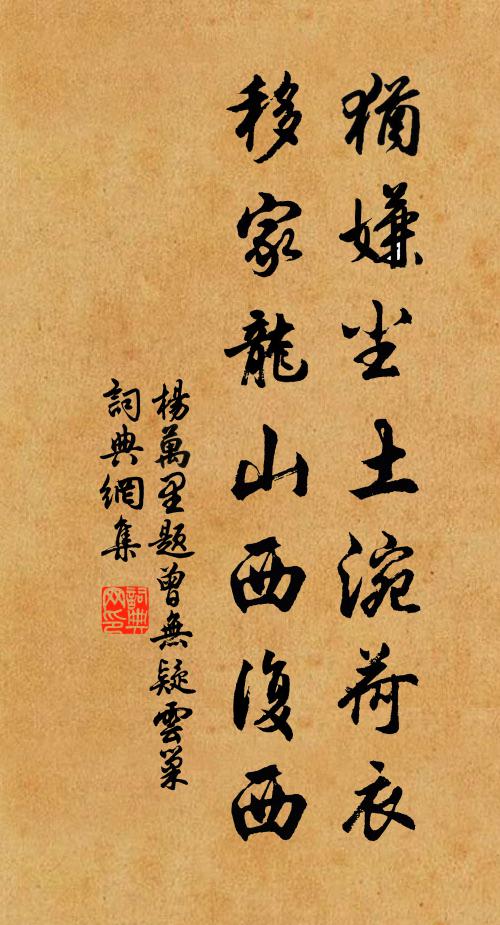 猶嫌尘土涴荷衣
移家龍山西復西
楊萬里題曾無疑雲巢
詞典網集
詞典网印